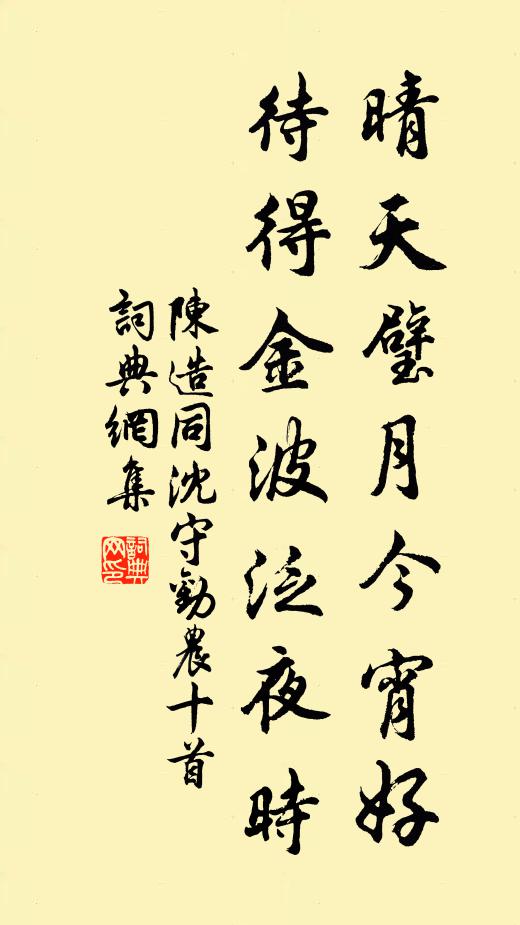 晴天璧月今宵好
待得金波泛夜時
陳造同沈守勸農十首
詞典網集
詞典
网印